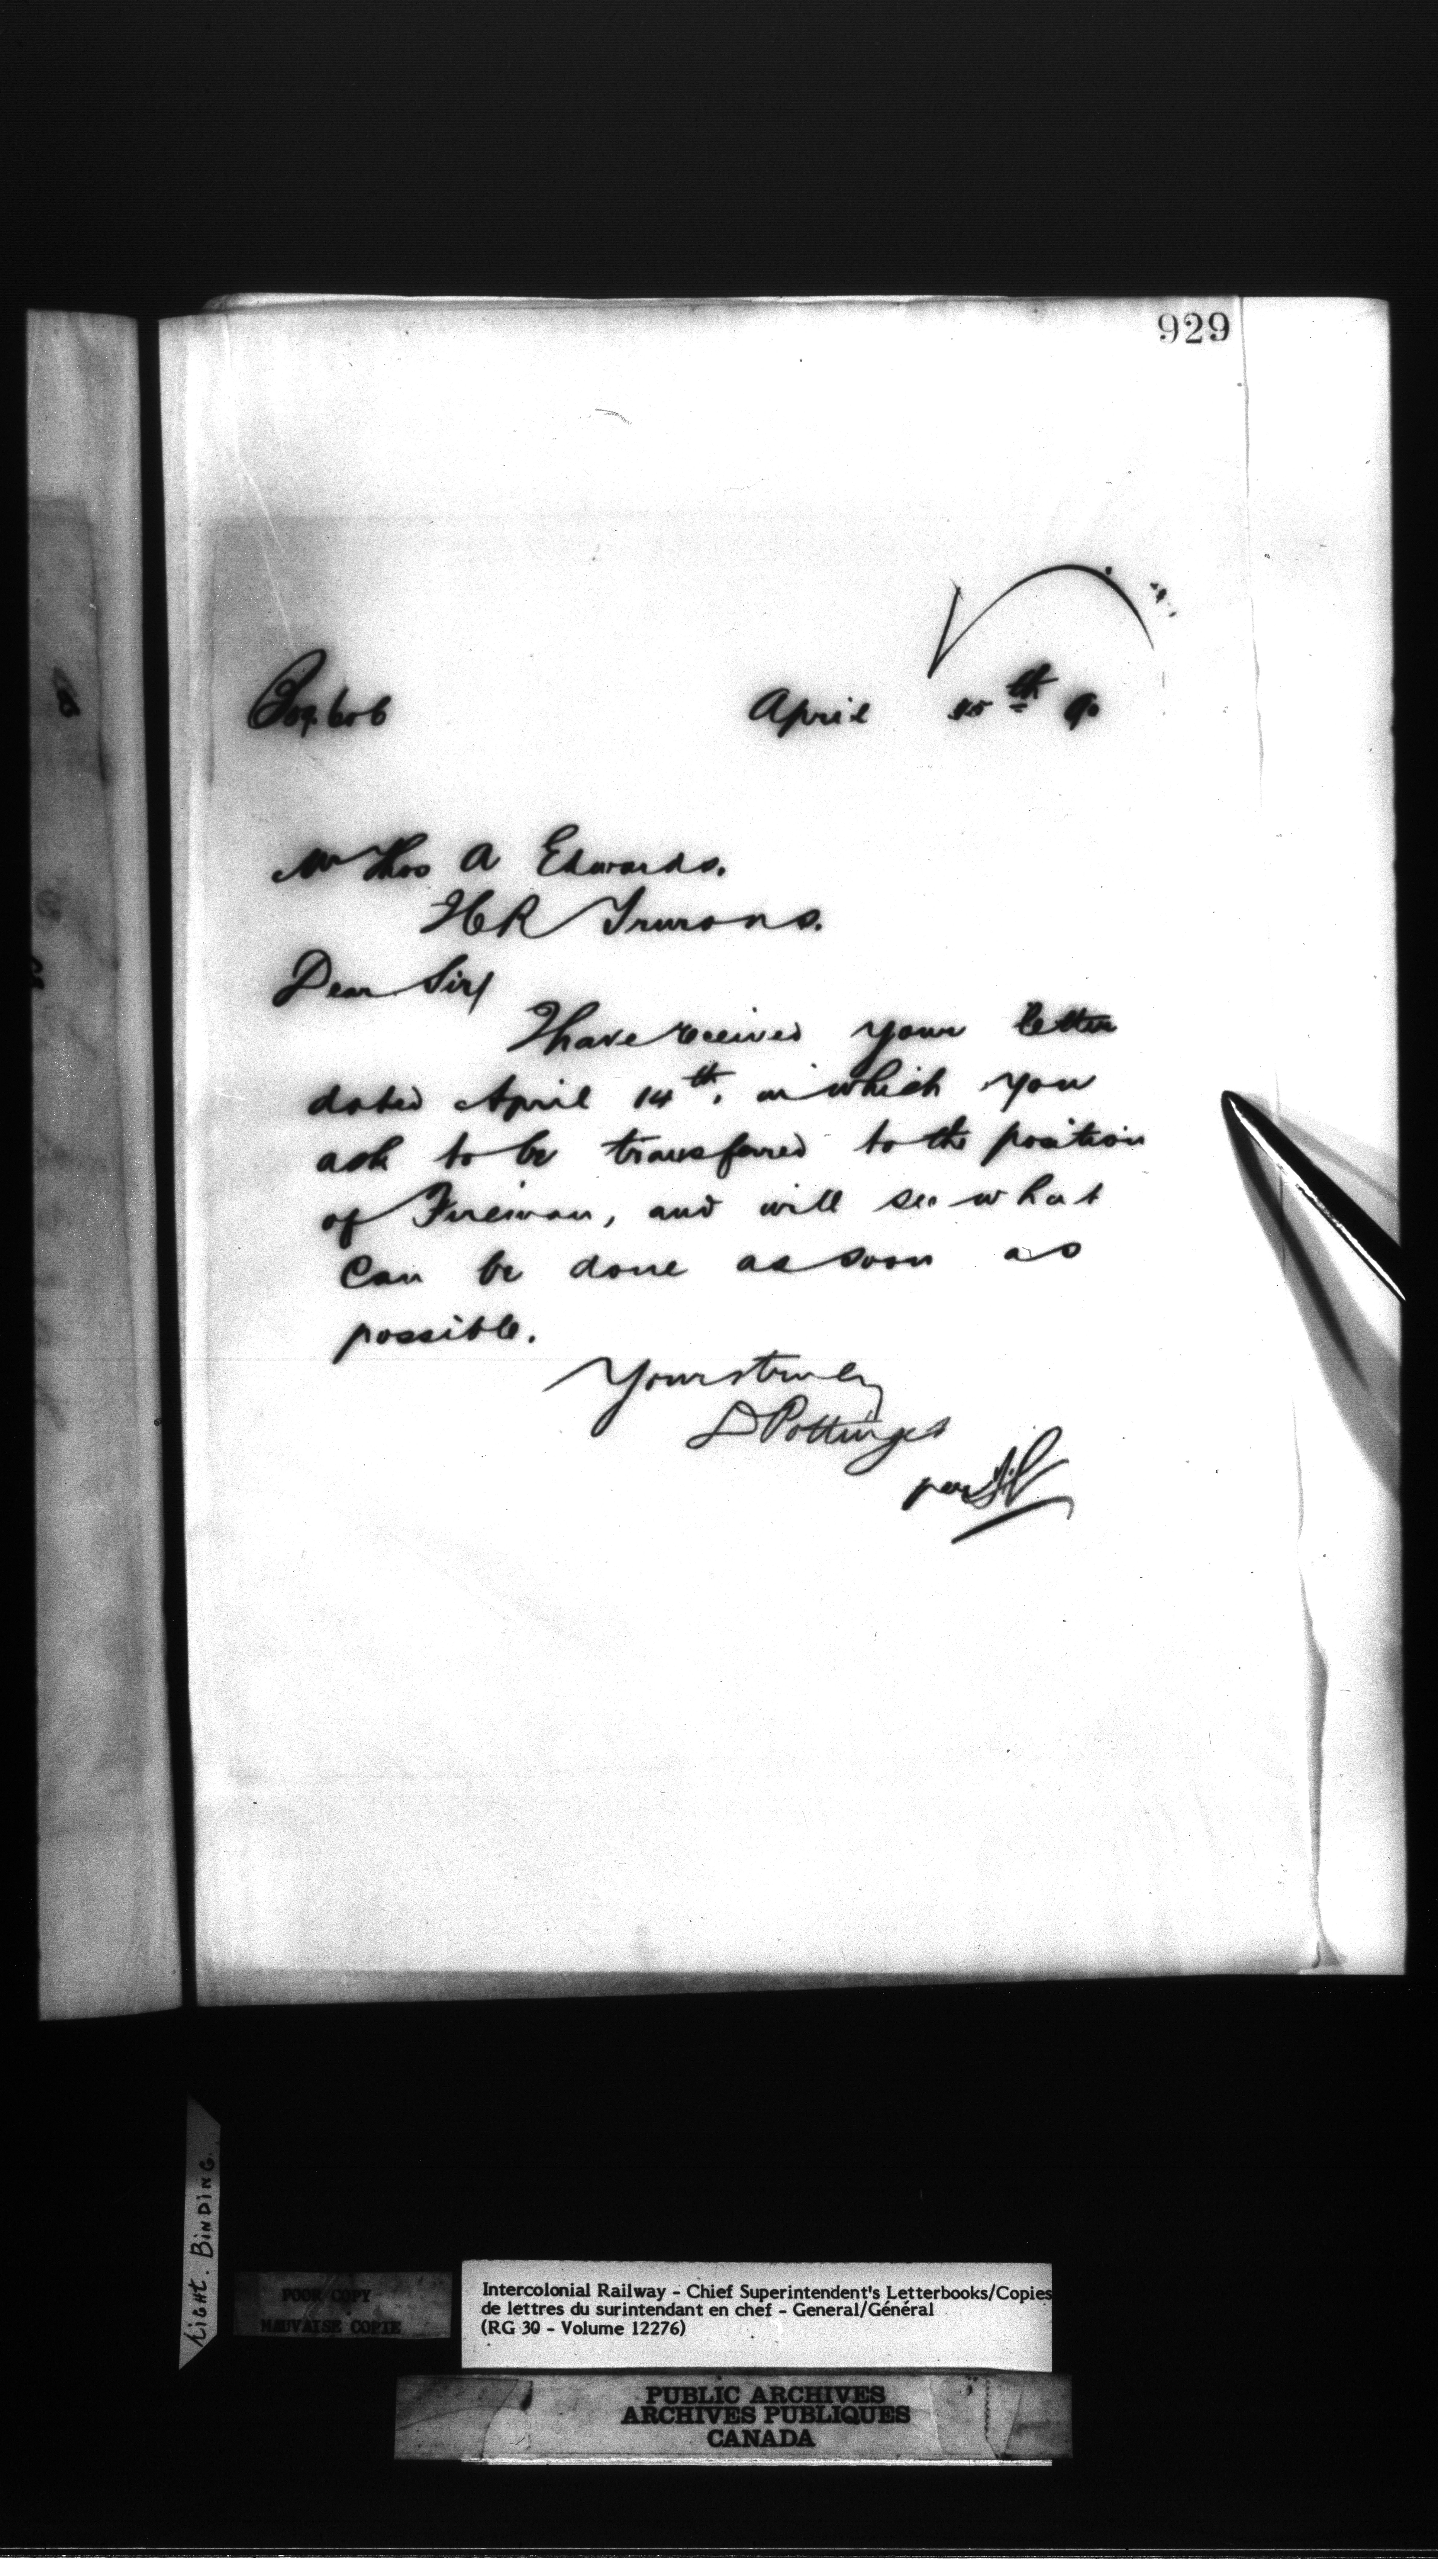 929
April 15th 90
Mr Thos A Edwards.
Dear Sir/
I have received your letter
dated April 14th, in which you
ask to be transferred to the position
of Fireman, and will see what
can be done as soon as
possible.
Yours truly
D Pottinger
per
LIGHT. BINDING.
POOR COPY
MAUVAISE COPIE
Intercolonial Railway - Chief Superintendent's Letterbooks/Copies
de lettres du surintendant en chef - General/Général
(RG 30 - Volume 12276)
PUBLIC ARCHIVES
ARCHIVES PUBLIQUES
CANADA